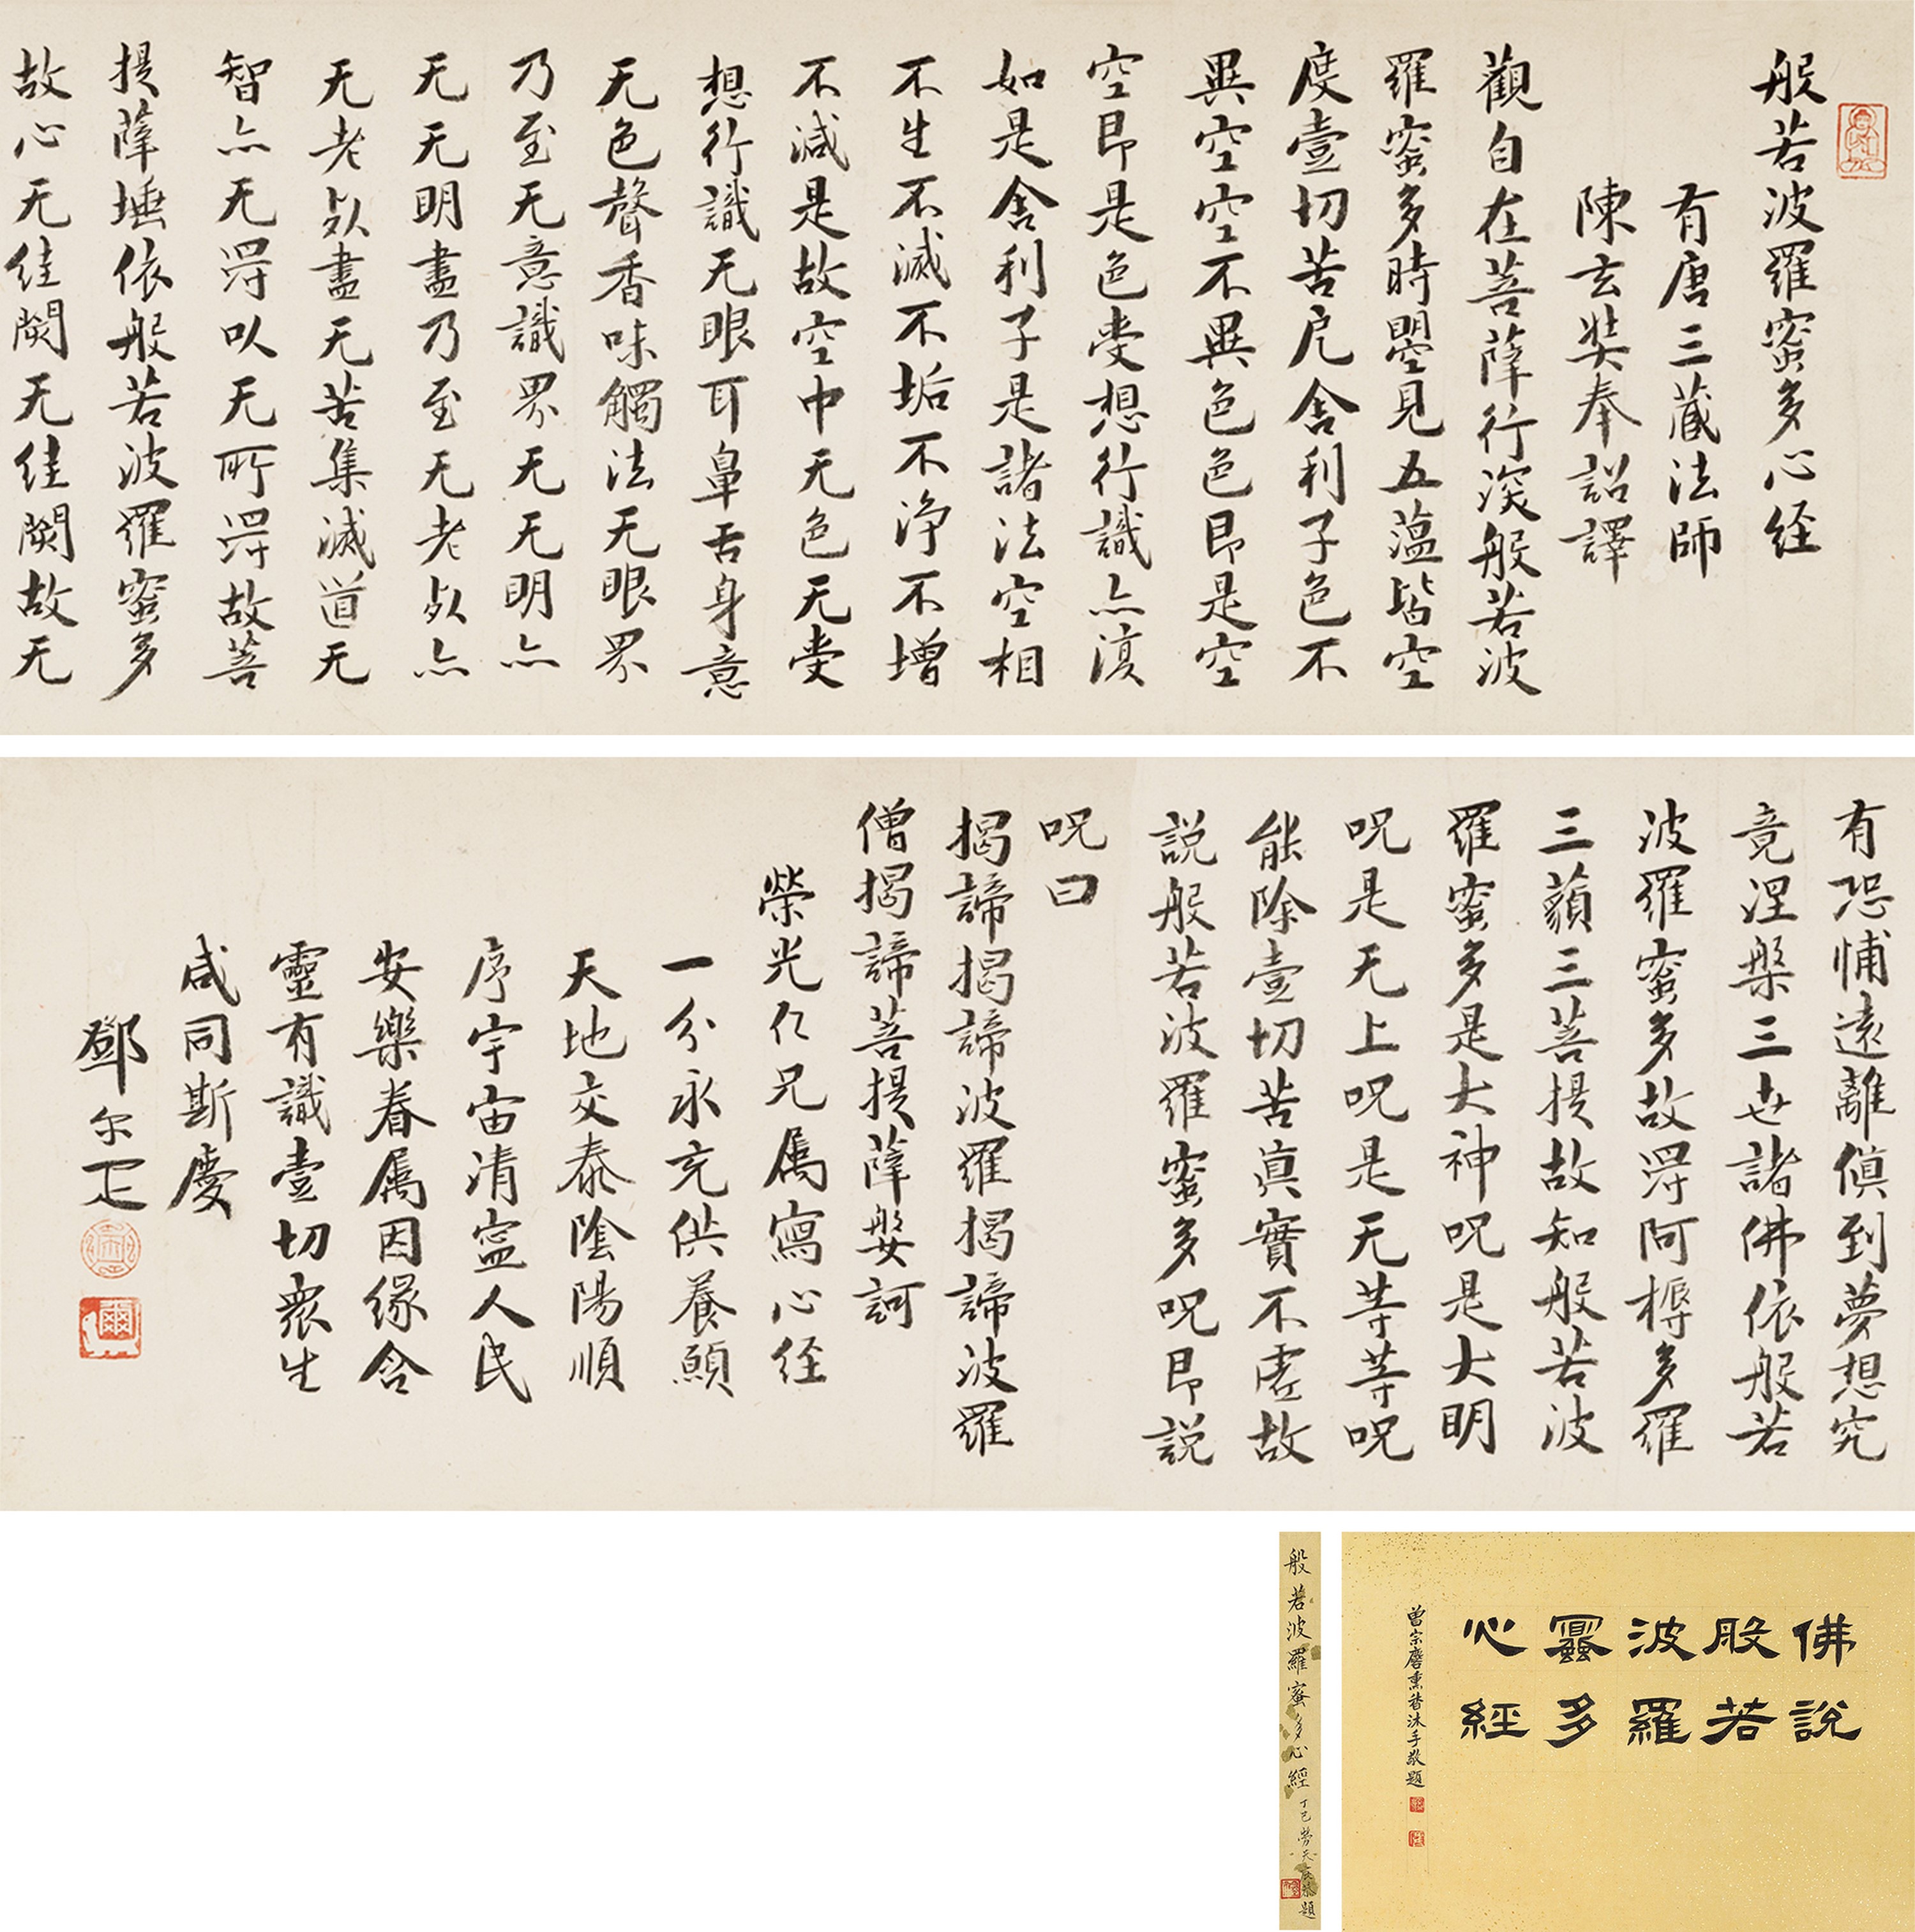 般若波羅蜜多心経
有唐三藏法師
陳玄奘奉詔譯
觀自在菩薩行深般若波
羅蜜多時曌見五蕰皆空
度壹切苦戹舎利子色不
異空空不異色色即是空
空即是色受想行識亦復
如是舎利子是諸法空相
不生不滅不垢不浄不增
不減是故空中无色无受
想行識无眼耳鼻舌身意
无色聲香味觸法无眼界
乃至无意識界无无明亦
无无明盡乃至无老死亦
无老死盡无苦集滅道无
智亦无得以无所得故菩
提薩埵依般若波羅蜜多
故心无絓閡无絓閡故无
有恐悑遠離傎到夢想究
竟涅槃三世諸佛依般若
波羅蜜多故得阿耨多羅
三藐三菩提故知般若波
羅蜜多是大神呪是大明
呪是无上呪是无等等呪
能除壹切苦真實不虛故
説般若波羅蜜多呪即説
呪曰
揭諦揭諦波羅揭諦波羅
僧揭諦菩提薩婆訶
榮光仁兄属寫心経
一分永充供養願
天地交泰陰陽順
序宇宙清寍人民
安樂眷属因緣含
靈有識壹切衆生
咸同斯慶
鄧尔疋
爾
佛說
般若
波羅
蜜多
心經
曾宗麐熏香沐手敬題
般若波羅蜜多心經
丁巳勞天庇敬題